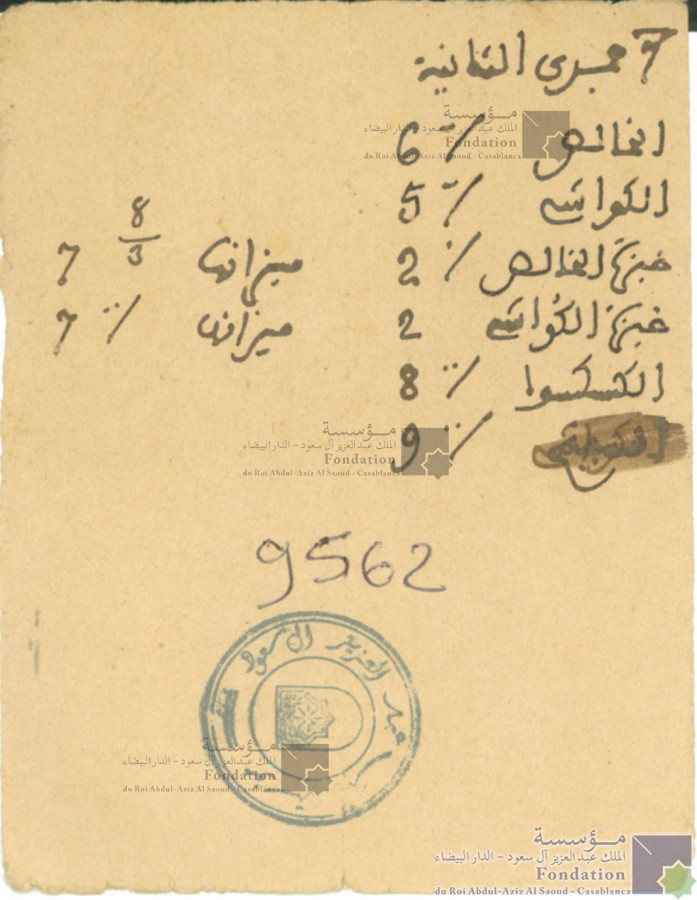 7 جمدى الثانية
الخالص ٪ 6
الكواشه ٪ 5
خبزة الخالص ٪ 2 ميزانها 8/3 7
خبزة الكواشه 2 ميزانها ٪ 7
الكسكسوا ٪ 8
٪ 9
9562
عبد العزيز آل سعود
مؤسسة
الملك عبد العزيز آل سعود - الدار البيضاء
Fondation
du Roi Abdul-Aziz Al Saoud - Casablanca
مؤسسة
الملك عبد العزيز آل سعود - الدار البيضاء
Fondation
du Roi Abdul-Aziz Al Saoud - Casablanca
مؤسسة
الملك عبد العزيز آل سعود - الدار البيضاء
Fondation
du Roi Abdul-Aziz Al Saoud - Casablanca
مؤسسة
الملك عبد العزيز آل سعود - الدار البيضاء
Fondation
du Roi Abdul-Aziz Al Saoud - Casablanca